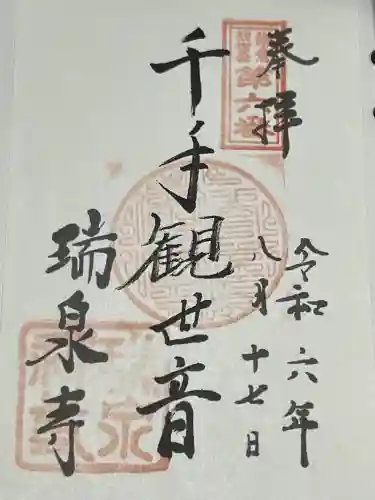 奉拝
令和六年
八月十七日
千手観世音
瑞泉寺
第六番